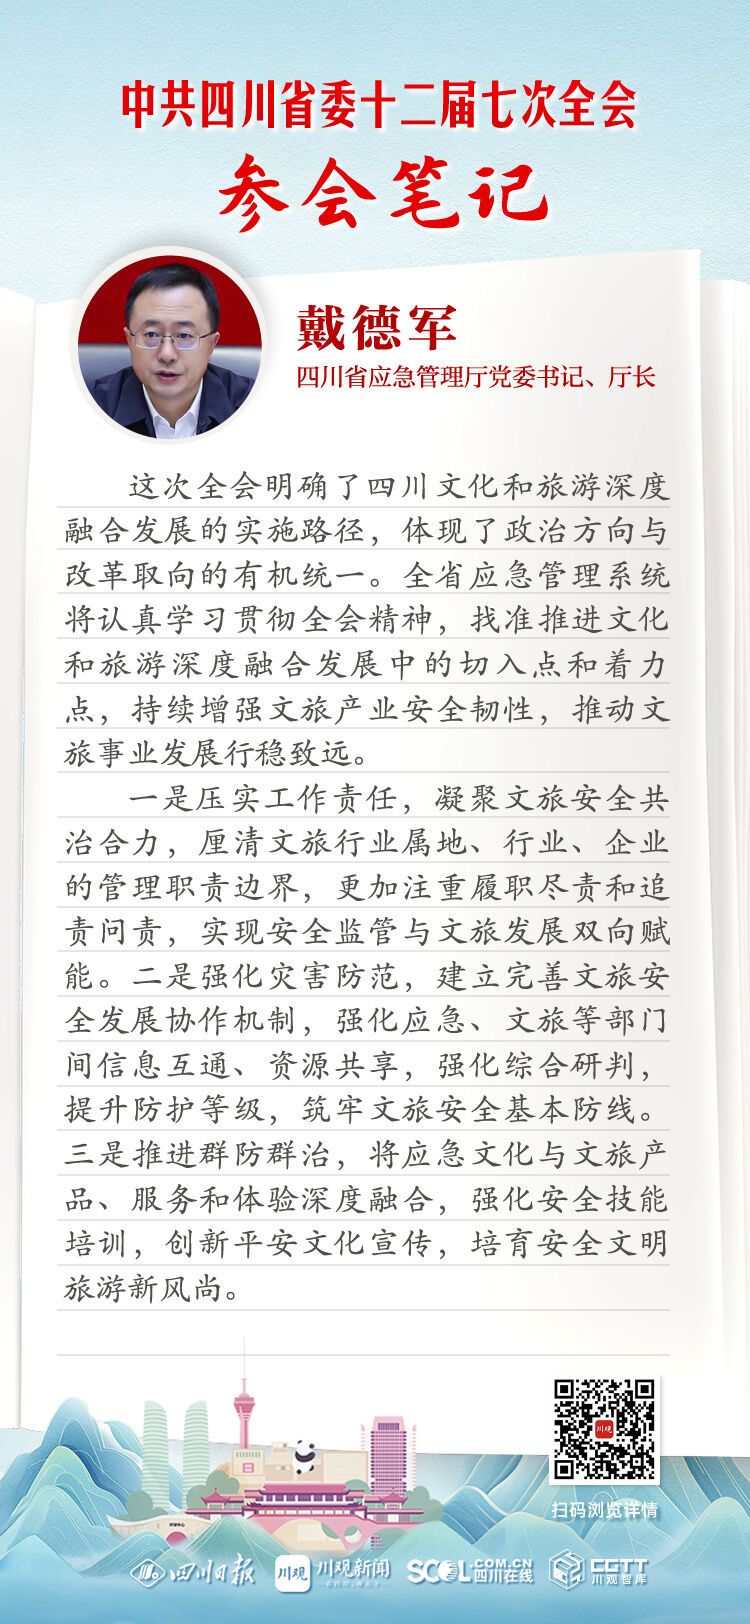 中共四川省委十二届七次全会
参会笔记
戴德军
四川省应急管理厅党委书记、厅长
这次全会明确了四川文化和旅游深度
融合发展的实施路径，体现了政治方向与
改革取向的有机统一。全省应急管理系统
将认真学习贯彻全会精神，找准推进文化
和旅游深度融合发展中的切入点和着力
点，持续增强文旅产业安全韧性，推动文
旅事业发展行稳致远。
一是压实工作责任，凝聚文旅安全共
治合力，厘清文旅行业属地、行业、企业
的管理职责边界，更加注重履职尽责和追
责问责，实现安全监管与文旅发展双向赋
能。二是强化灾害防范，建立完善文旅安
全发展协作机制，强化应急、文旅等部门
间信息互通、资源共享，强化综合研判，
提升防护等级，筑牢文旅安全基本防线。
三是推进群防群治，将应急文化与文旅产
品、服务和体验深度融合，强化安全技能
培训，创新平安文化宣传，培育安全文明
旅游新风尚。
川观
扫码浏览详情
四川日报
川观
川观新闻
SCOL.COM.CN
四川在线
CGTT
川观智库